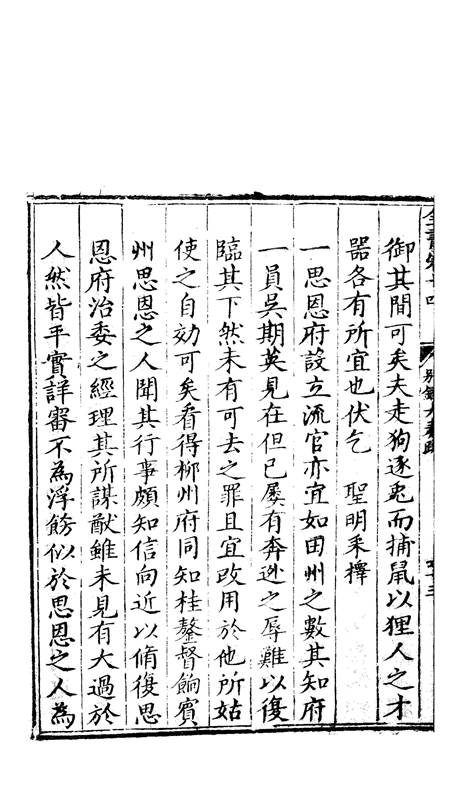 御其間可矣夫走狗逐兎而捕鼠以狸人之才
器各有所宜也伏乞 聖明采擇
一思恩府設立流官亦宜如田州之數其知府
一員吳期英見在但已屡有奔逊之辱難以復
臨其下然未有可去之罪且宜改用於他所姑
使之自効可矣看得柳州府同知桂鏊督餉賓
州思恩之人聞其行事頗知信向近以脩復思
恩府治委之經理其所謀猷雖未見有大過於
人然皆平實詳審不為浮餙似於思恩之人為